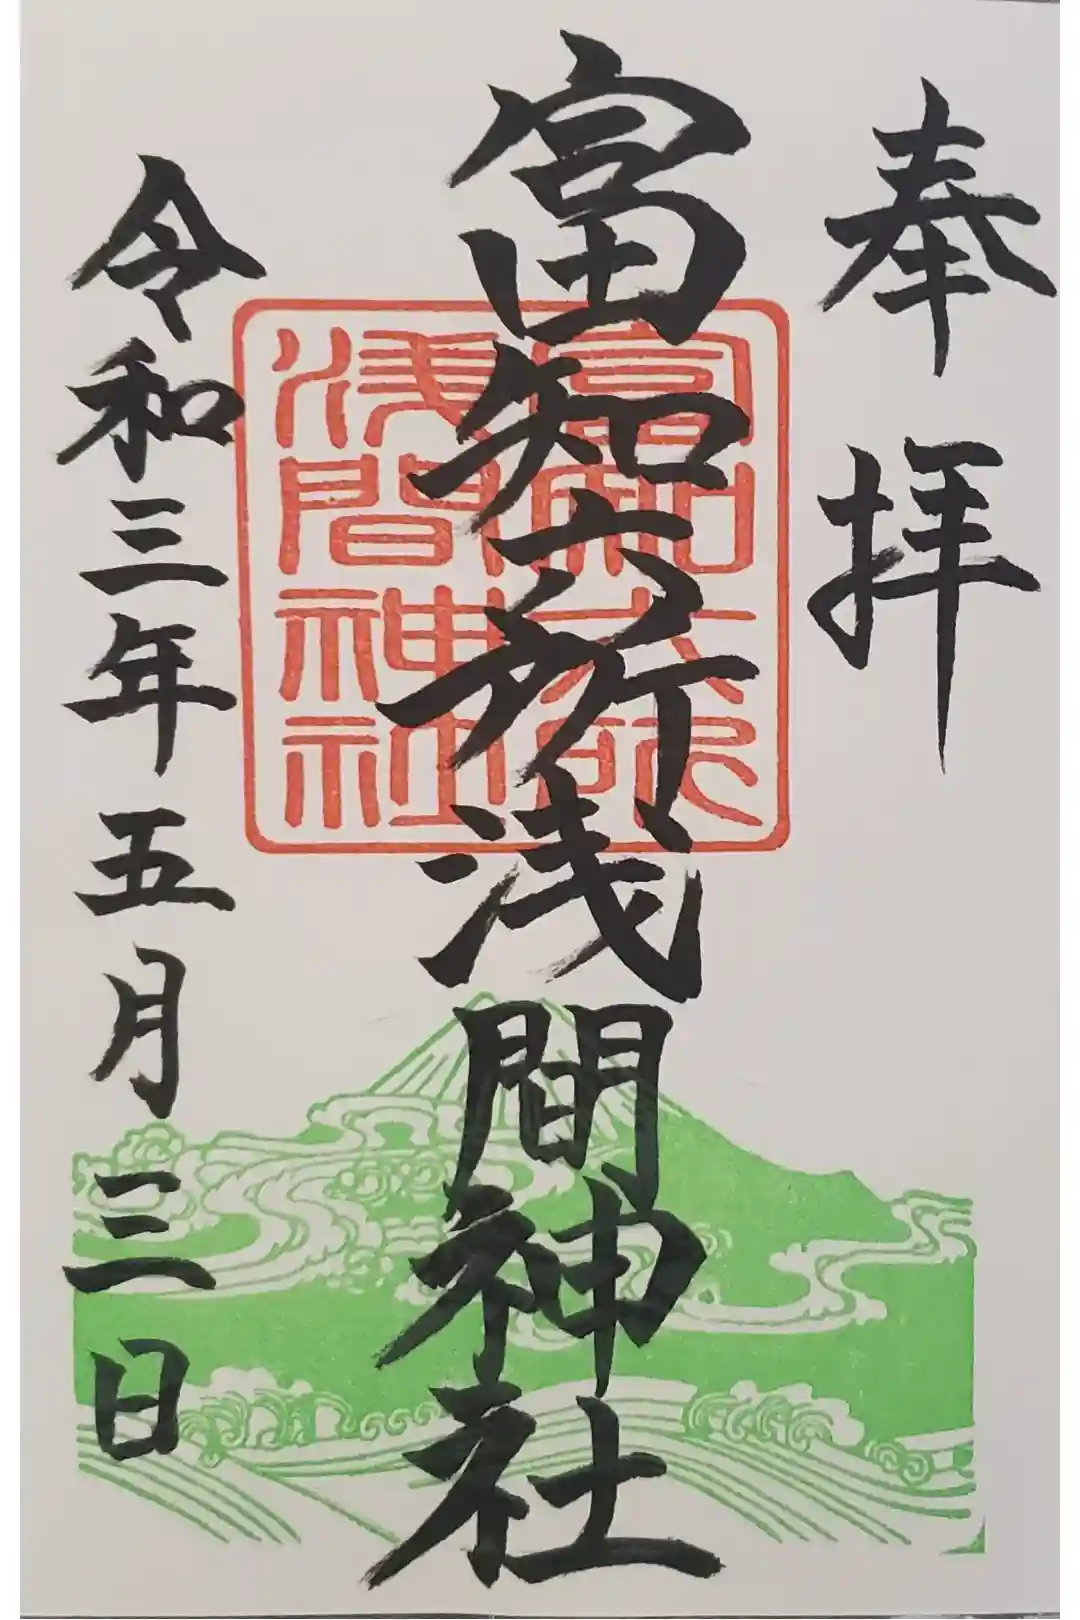 奉拝
富知六所浅間神社
富知六所
浅間神社
令和三年五月三日